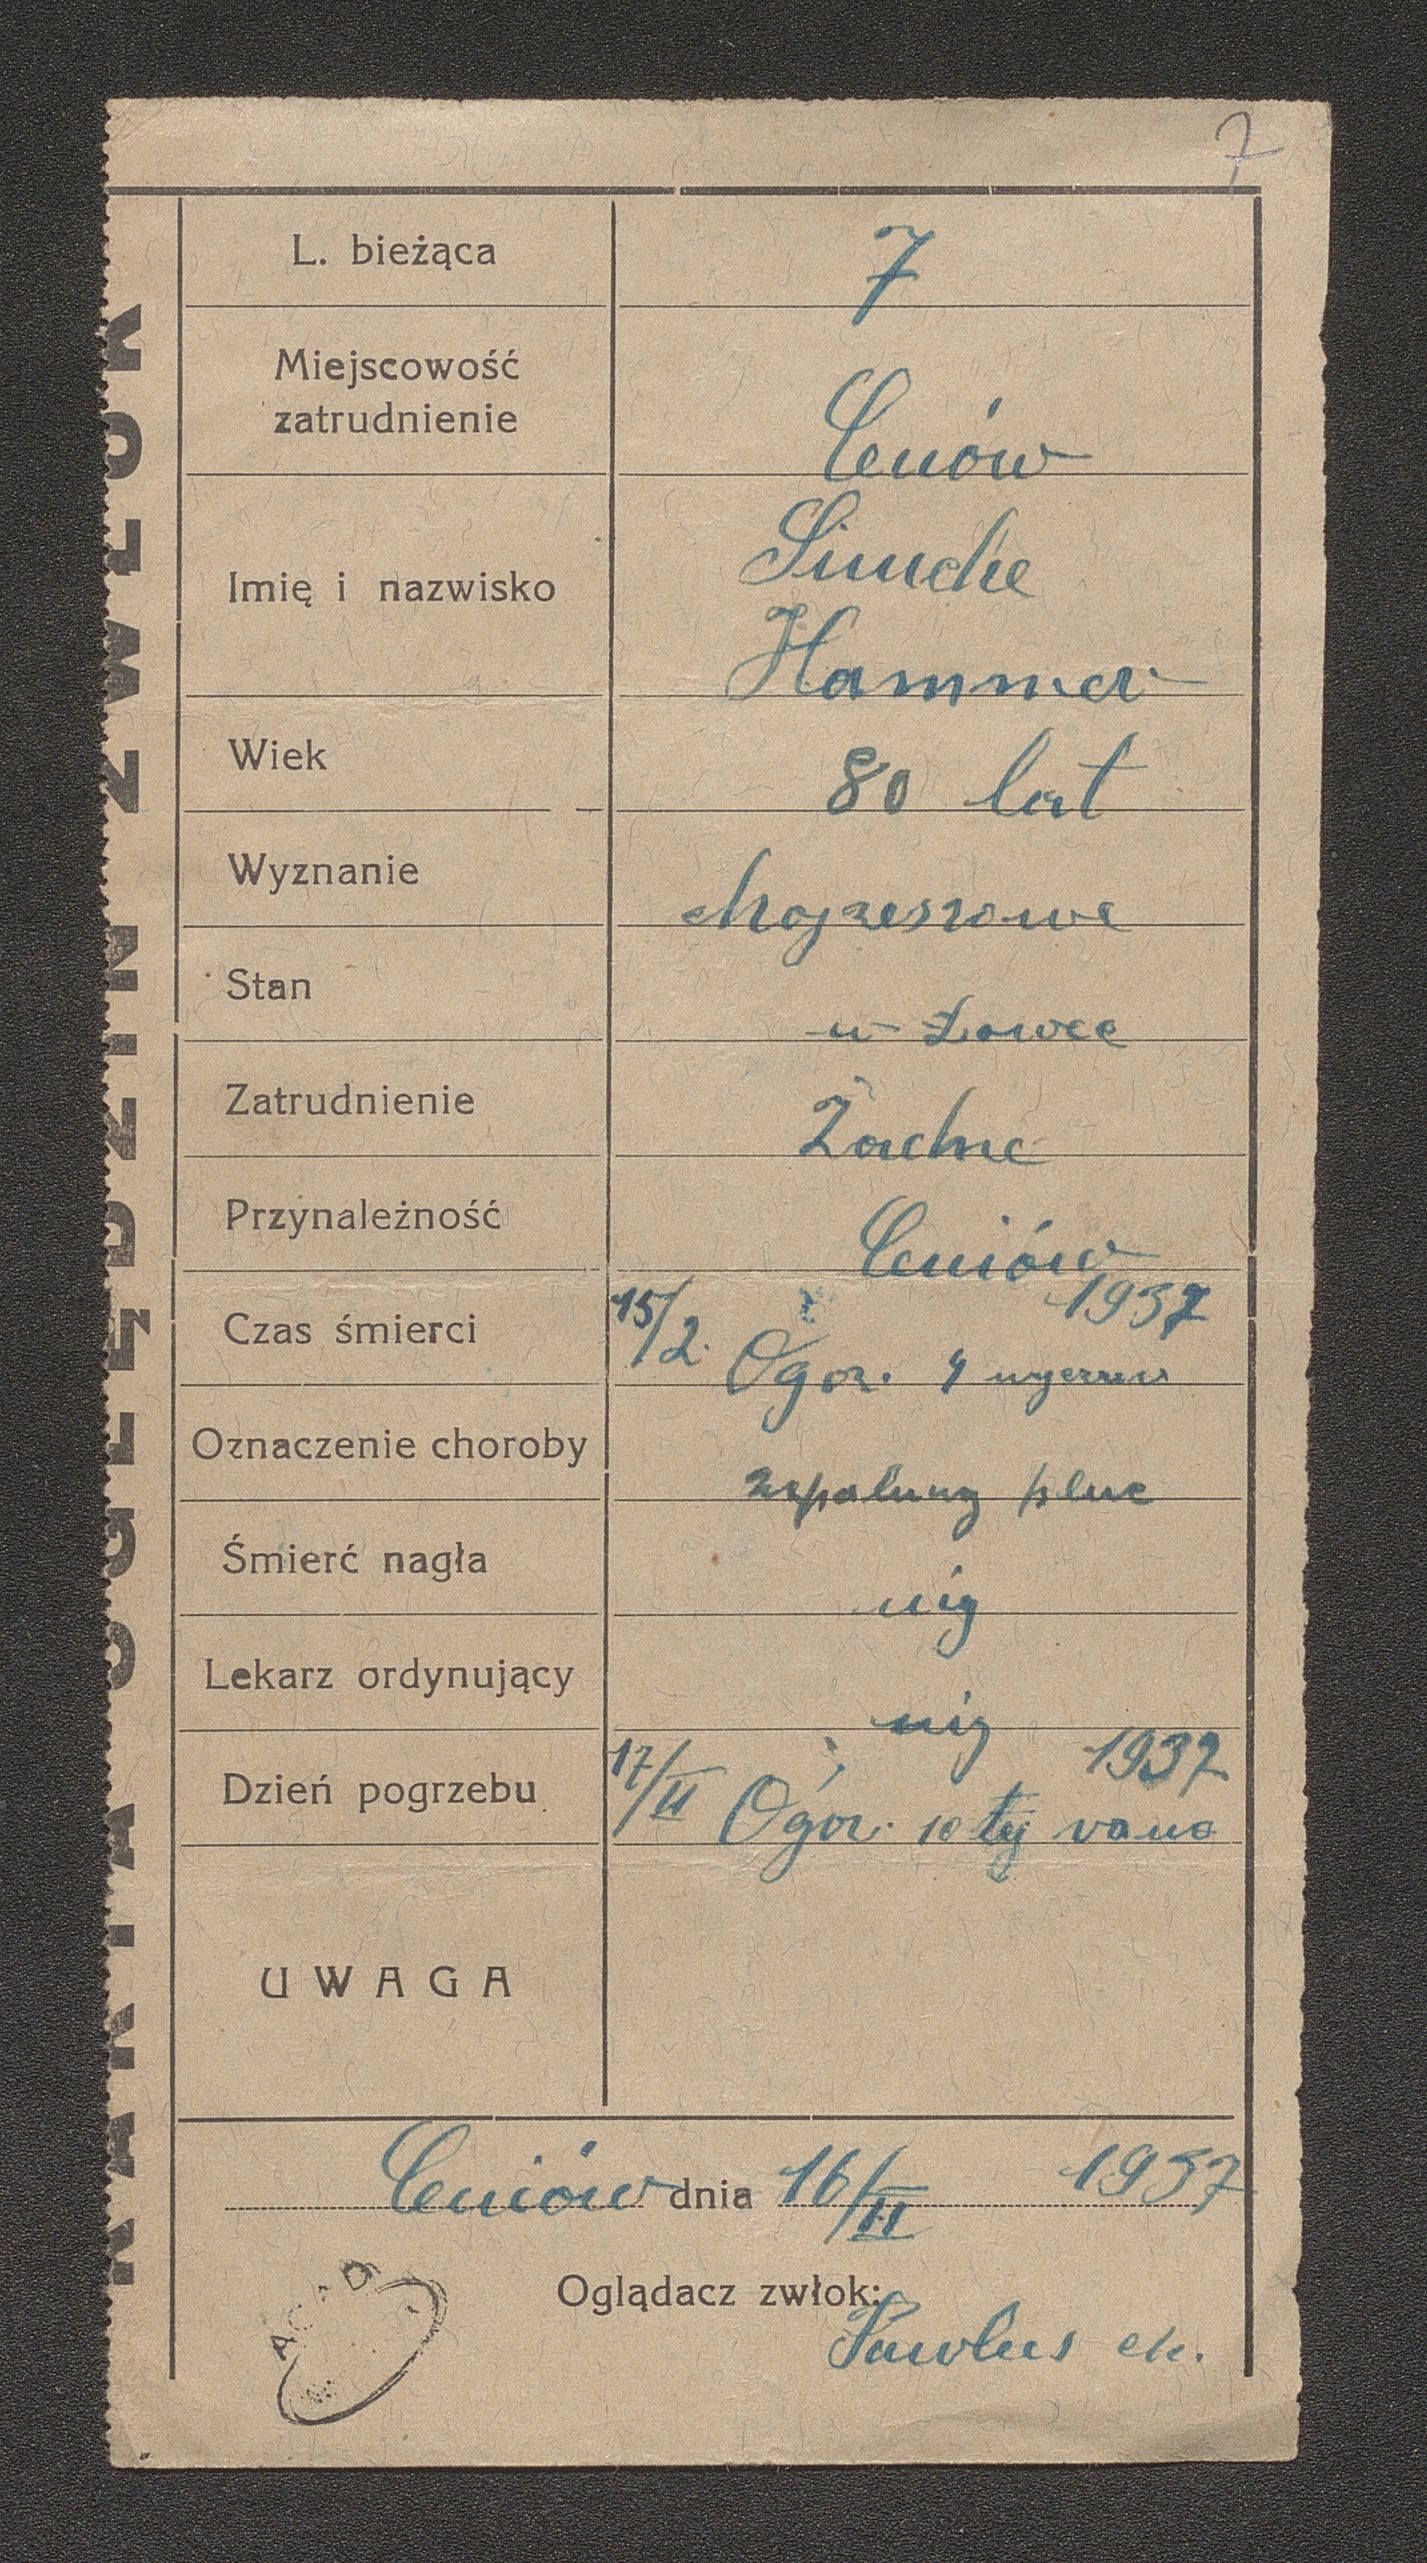 7
KARTA OGLĘDZIN ZWŁOK
L. bieżąca 7
Miejscowość
zatrudnienie Ceniów
Imię i nazwisko Simche
Hammer
Wiek 80 lat
Wyznanie Mojzeszowe
Stan
Zatrudnienie Żadne
Przynależność Ceniów
Czas śmierci 15/2. 1937
O goz. 4 wyczur
Oznaczenie choroby zapaluny pluc
Śmierć nagła nig
Lekarz ordynujący nig
Dzień pogrzebu 17/II 1937
O goz. 10 tej rano
UWAGA
Ceniów dnia 16/II 1937
Oglądacz zwłok:
Pawlus
AGAD